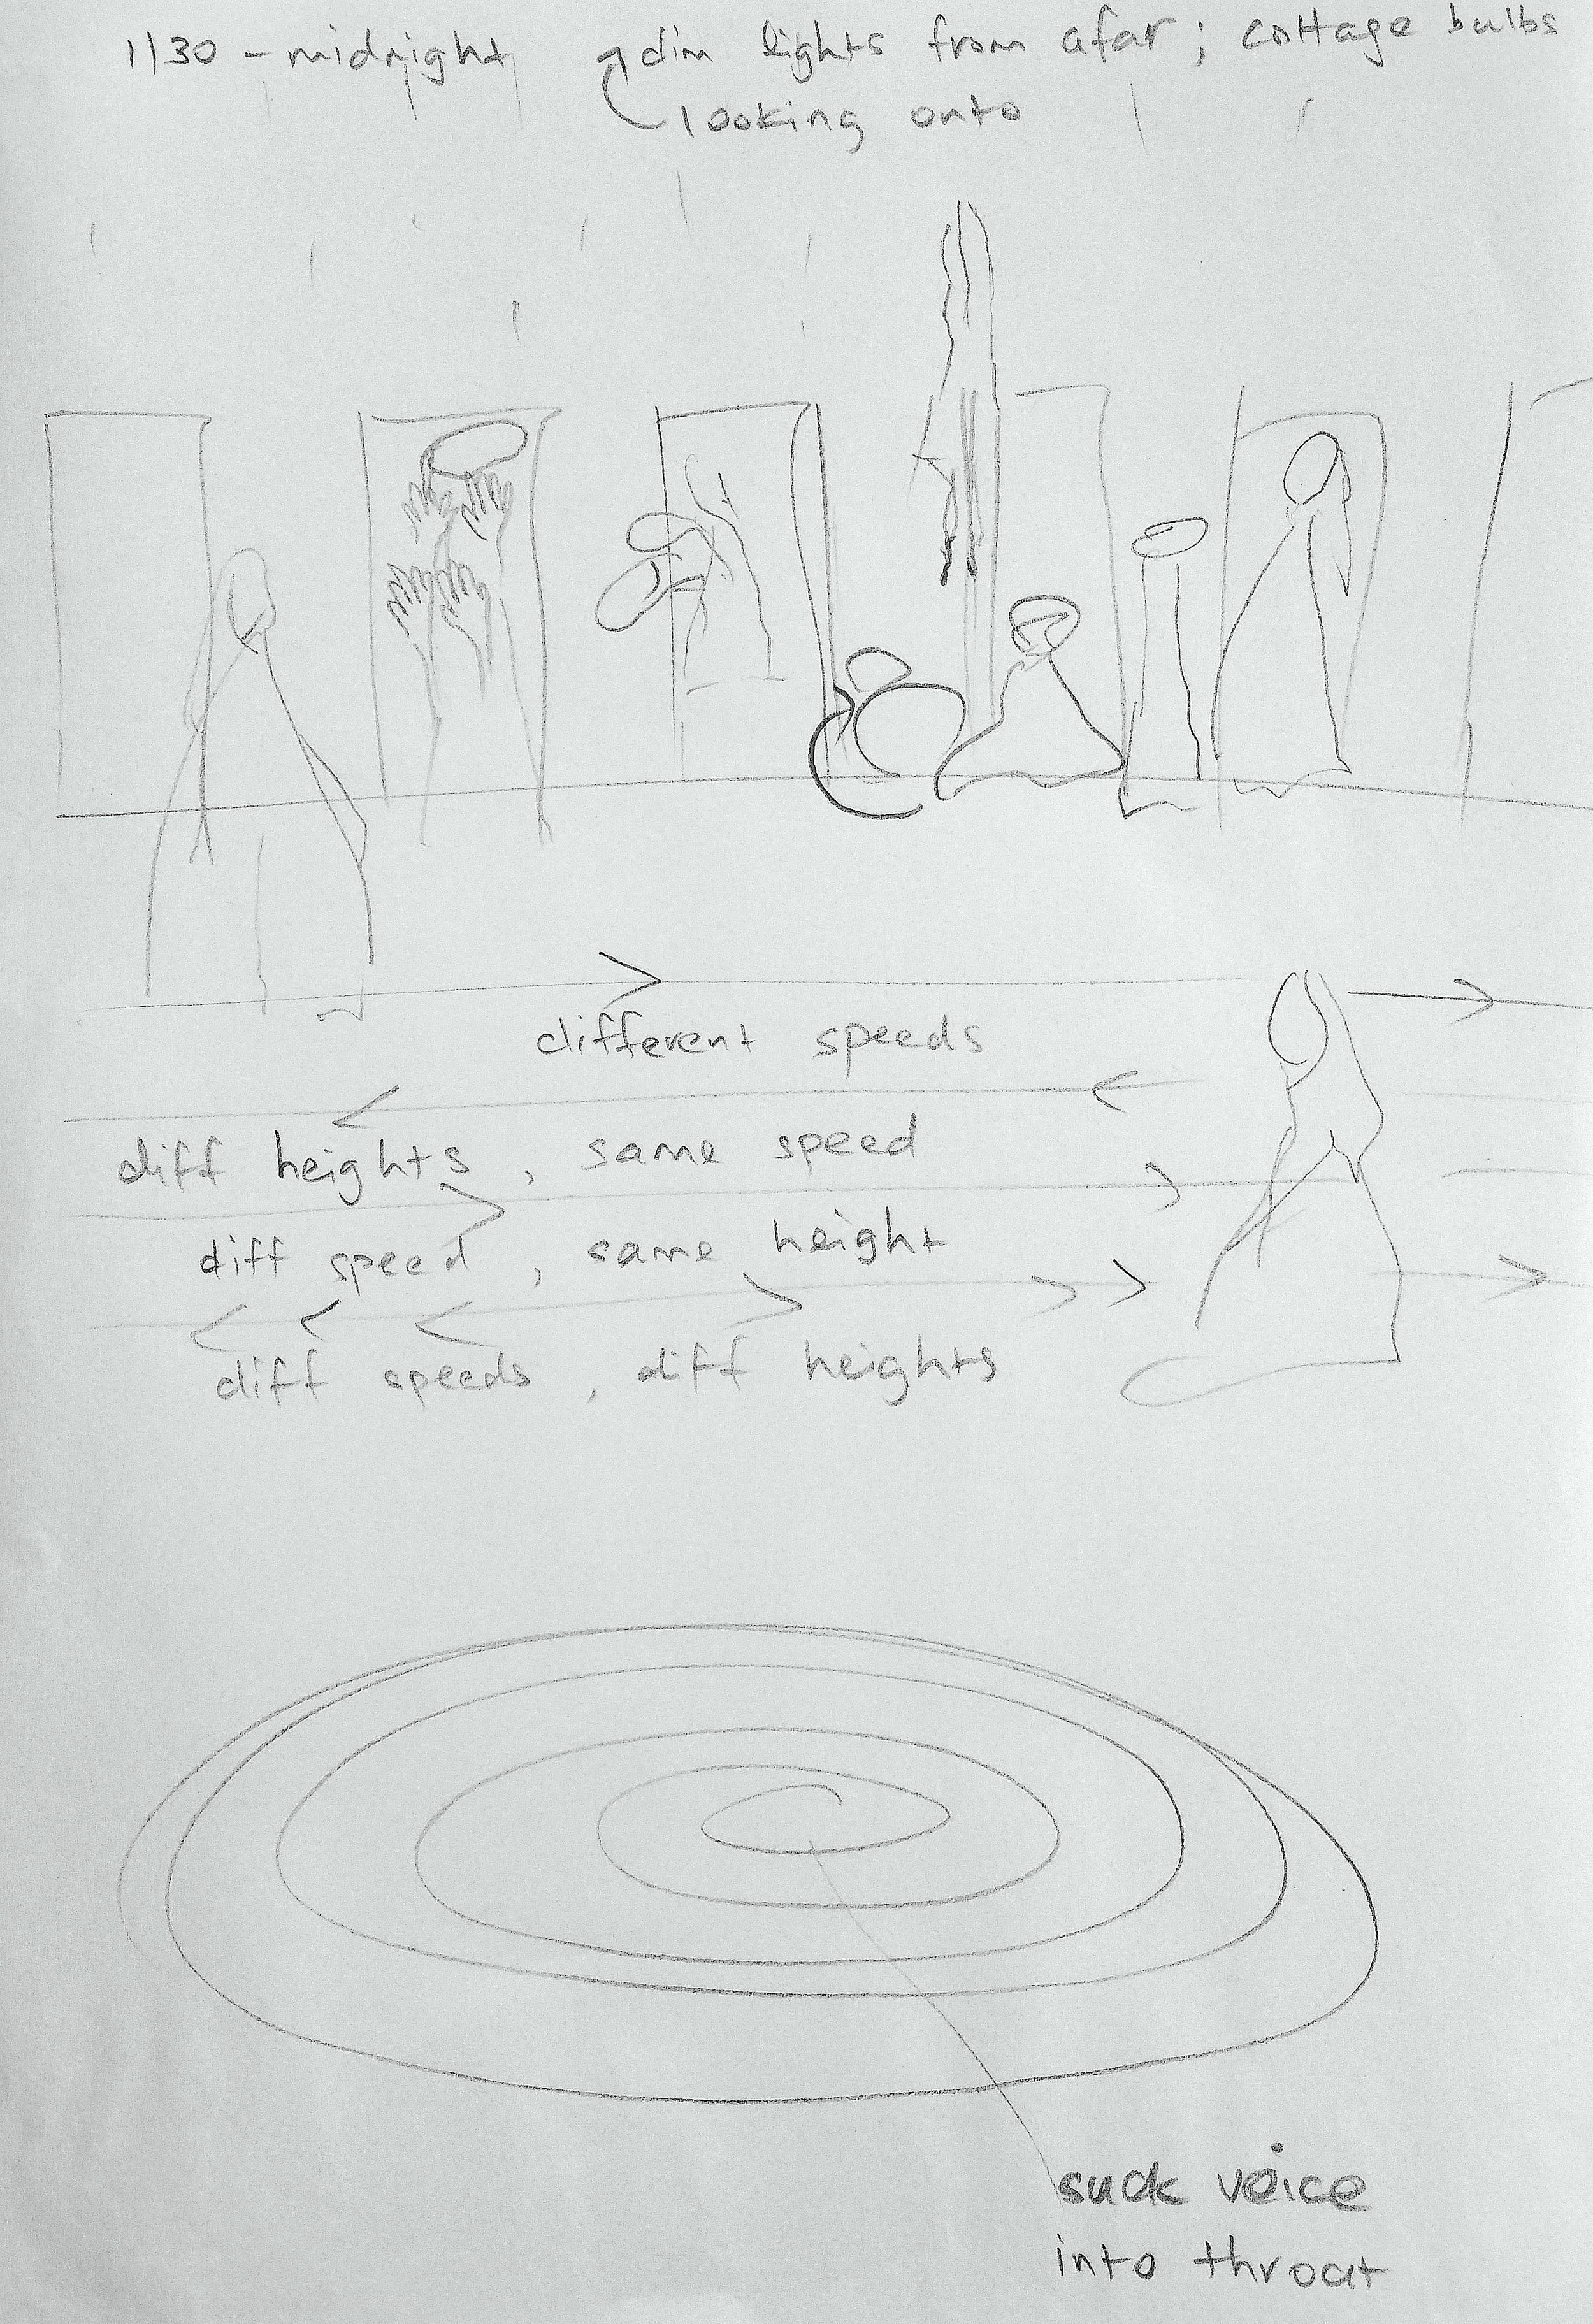 1130 - midnight dim lights from afar ; cottage bulbs
looking onto
different speeds
diff heights , same speed
diff speed , same height
diff speeds , diff heights
suck voice
into throat